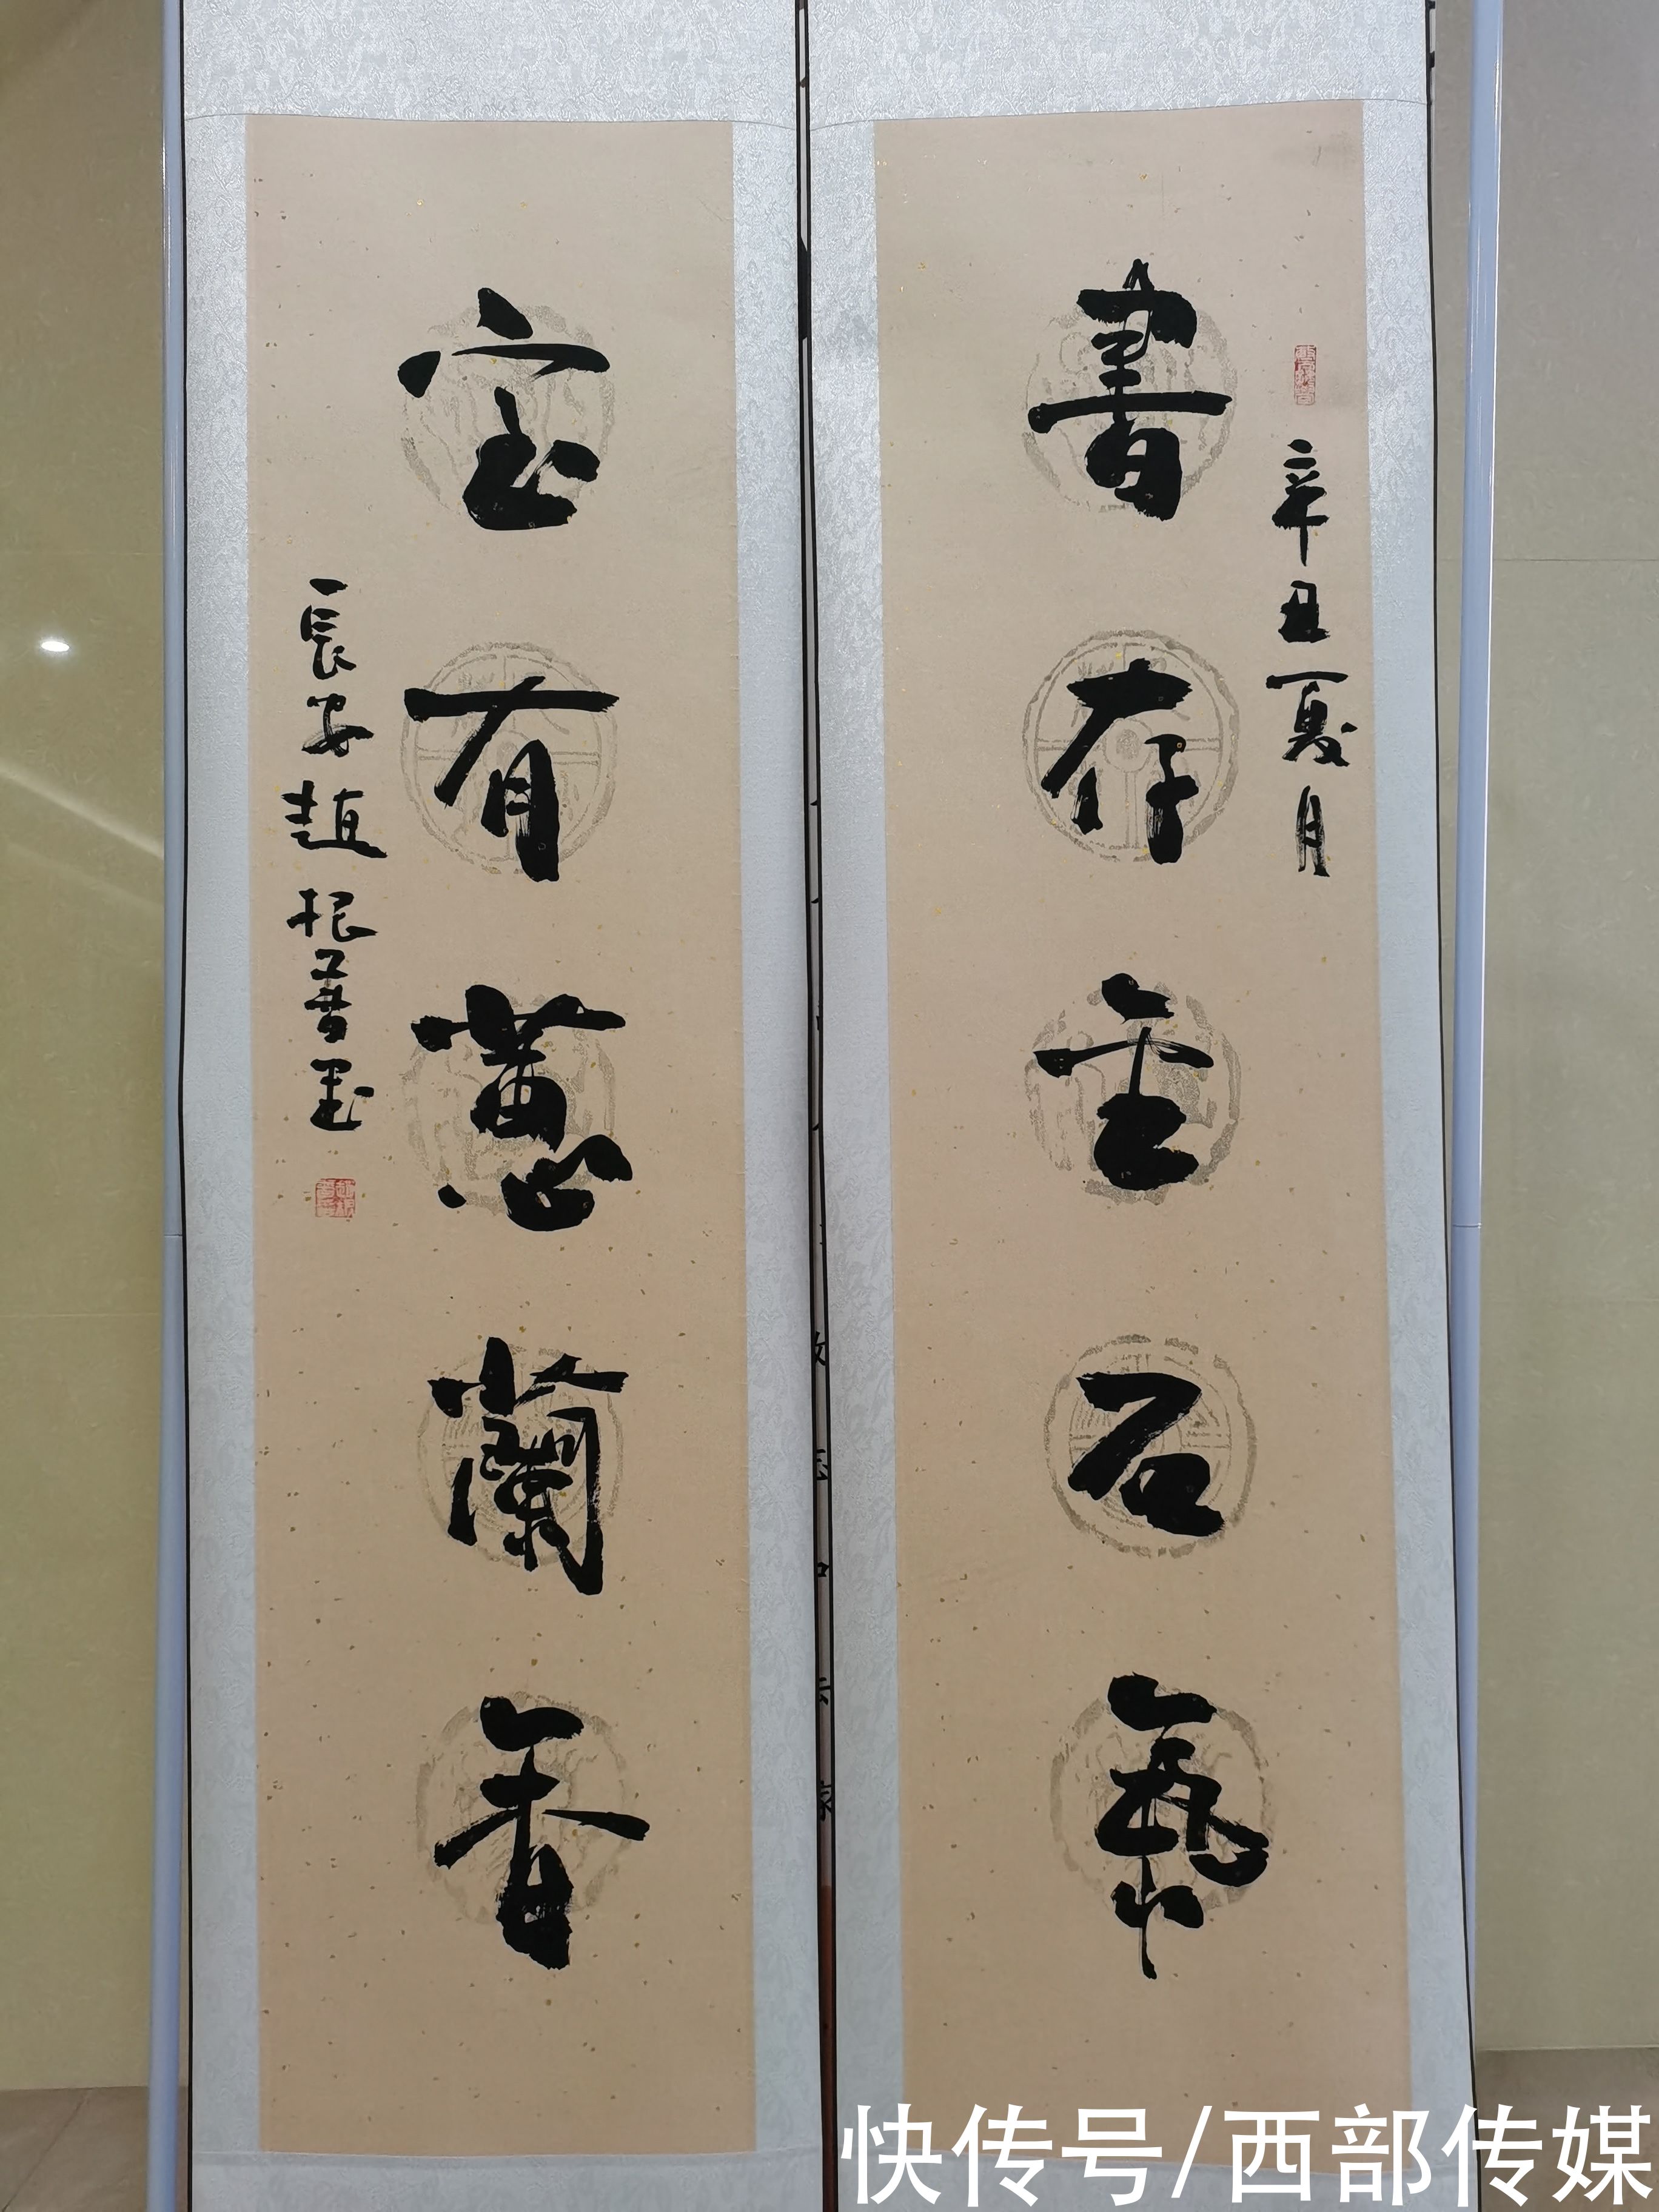 辛丑夏月
書存金石氣
室有蕙蘭香
長安趙根
快传号/西部传媒